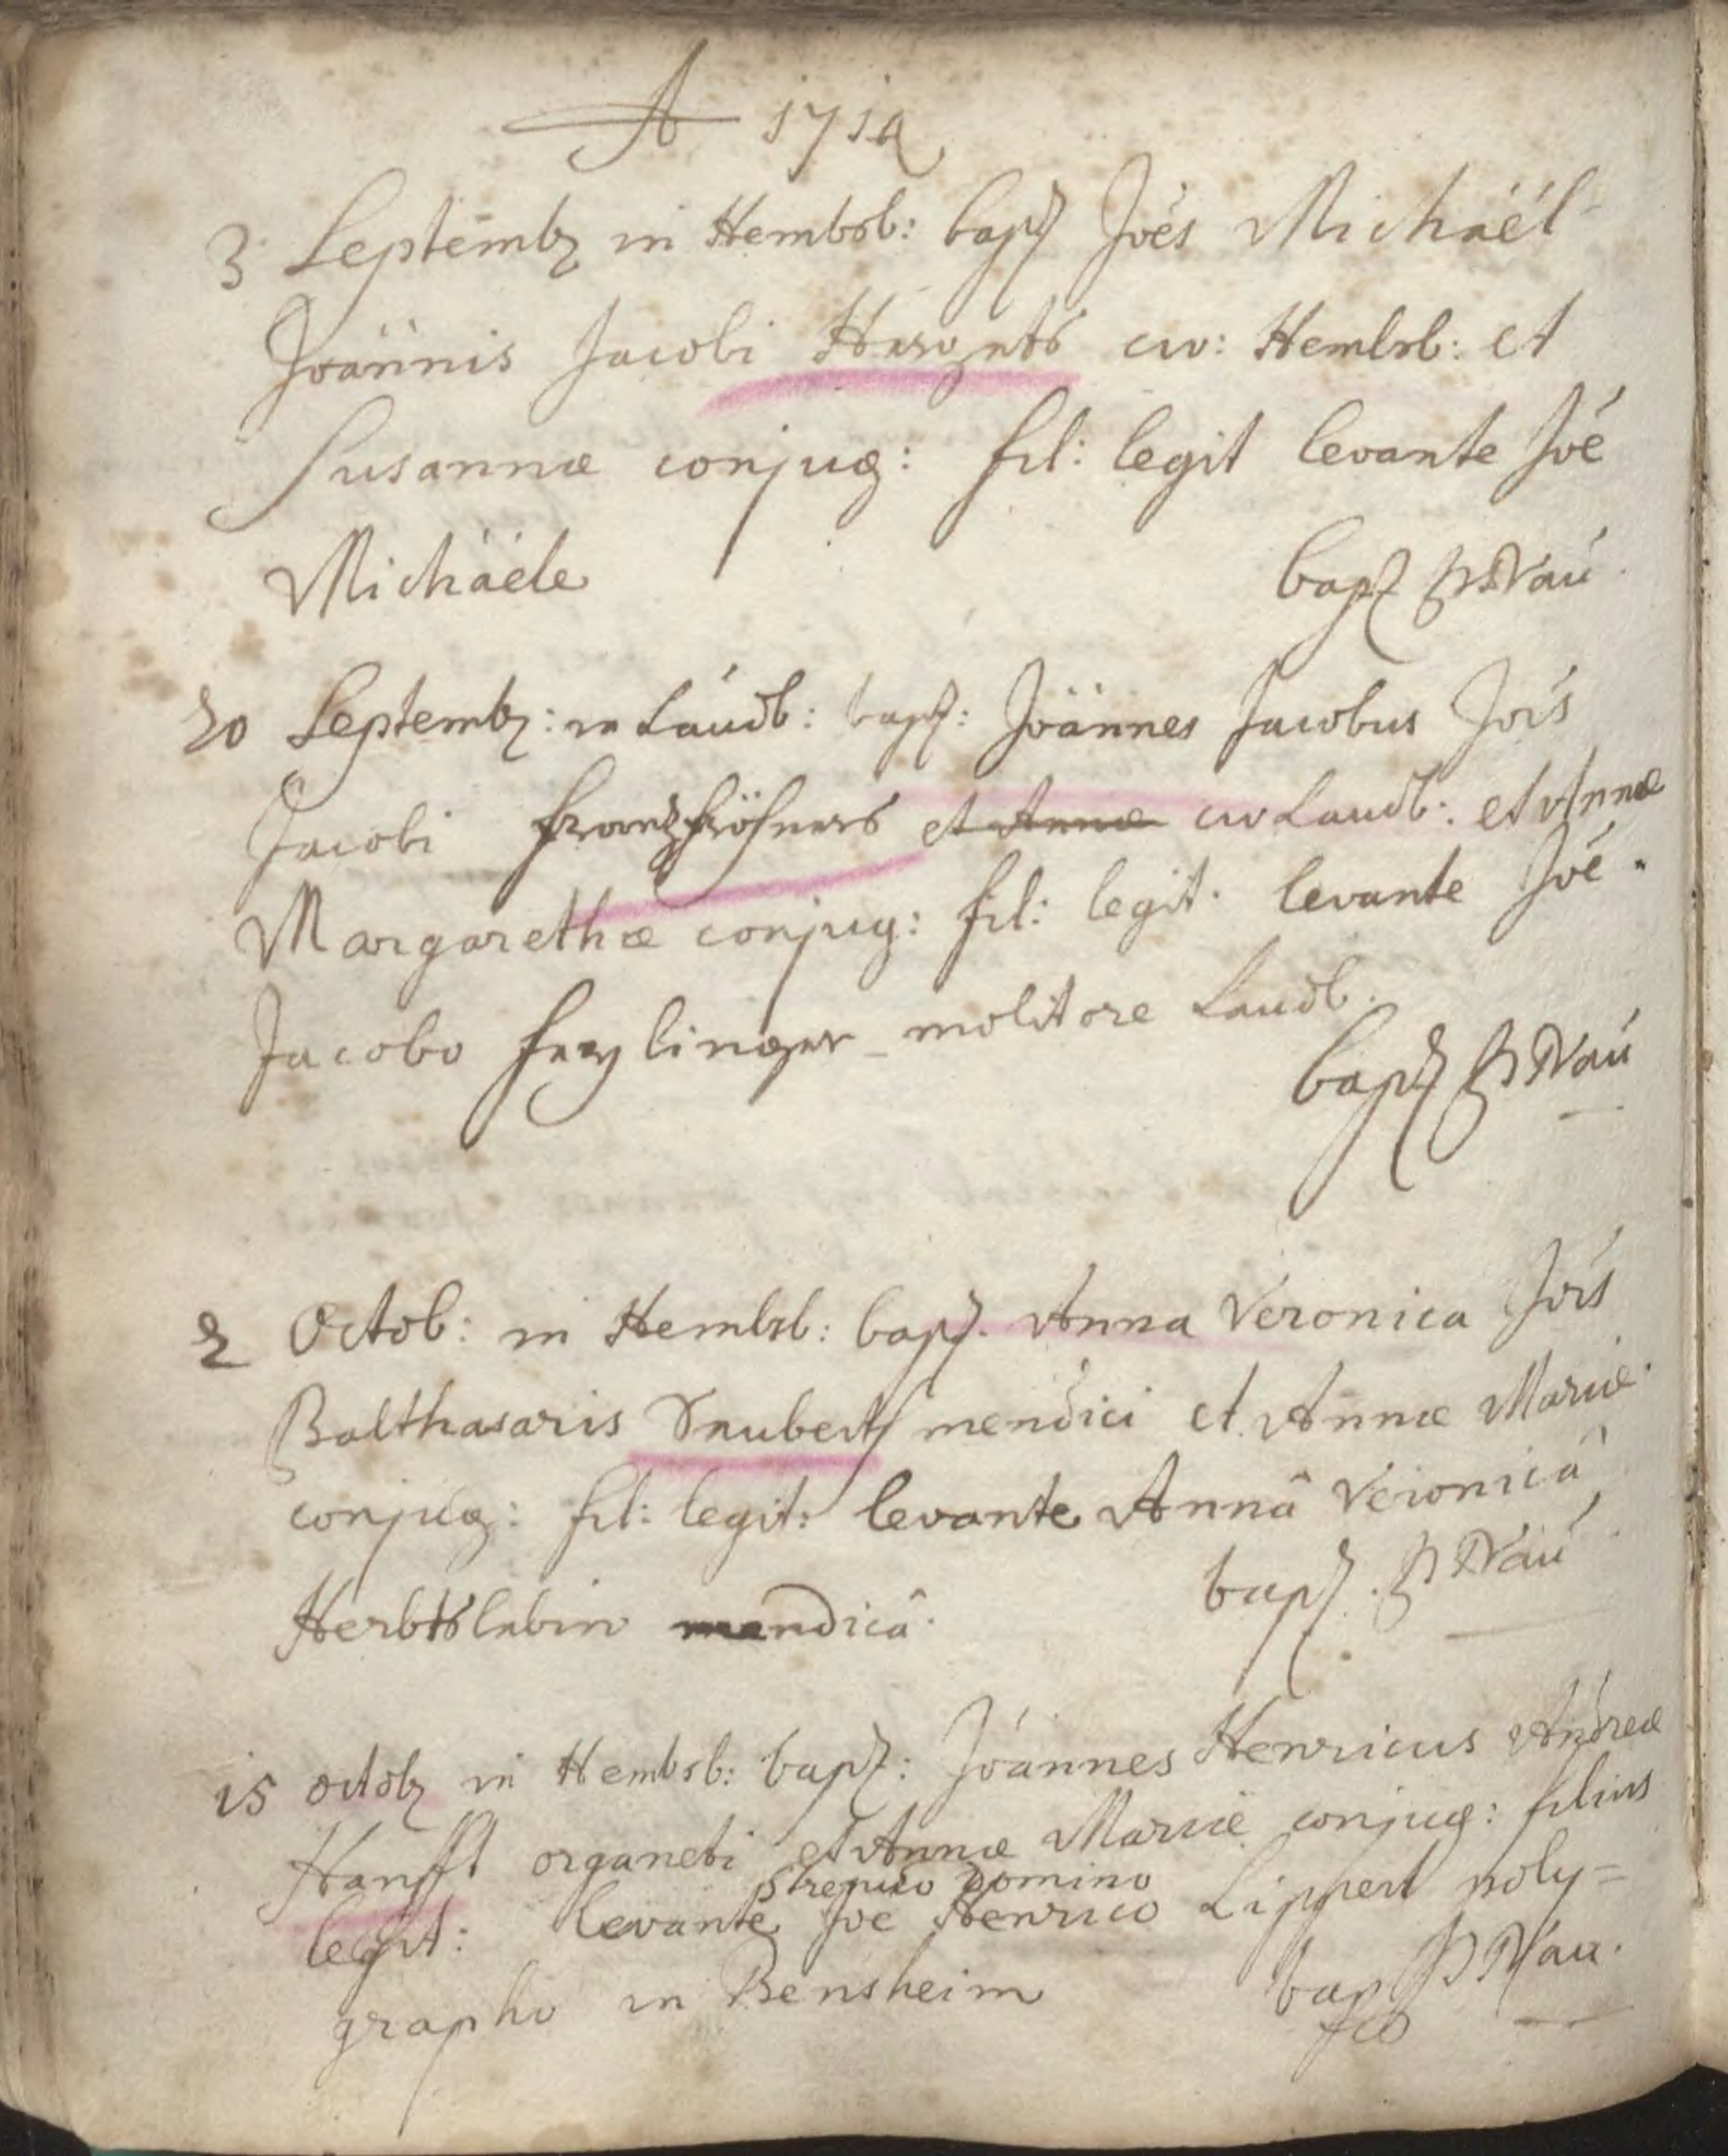 A 1714
3 Septembr in Hembsb: bapt Joés Michaël
Joännis Jacobi civ: Hembsb: et
Susannæ conjug: fil: legit levante Joé
Michäéle bapt P Nau
20 Septembr: in Laudb: bapt: Joännes Jacobus Jois
Jacobi et Annæ civ Laudb: et Annæ
Margarethæ conjug: fil: legit. levante Joé
Jacobo molitore Laudb.
bapt P Nau
2 Octob: in Hembsb: bapt. Anna Veronica Jois
Balthasaris mendici et Annæ Mariæ
conjug: fil: legit: levante Annâ Veronicâ
mendicâ. bapt. P Nau
15 Octobr in Hembsb: bapt: Joannes Henricus Andreæ
Hanfft et Annæ Mariæ conjug: filius
Domino
legit: levante Joe Henrico Lippert poly=
grapho in Bensheim bapt P Nau.